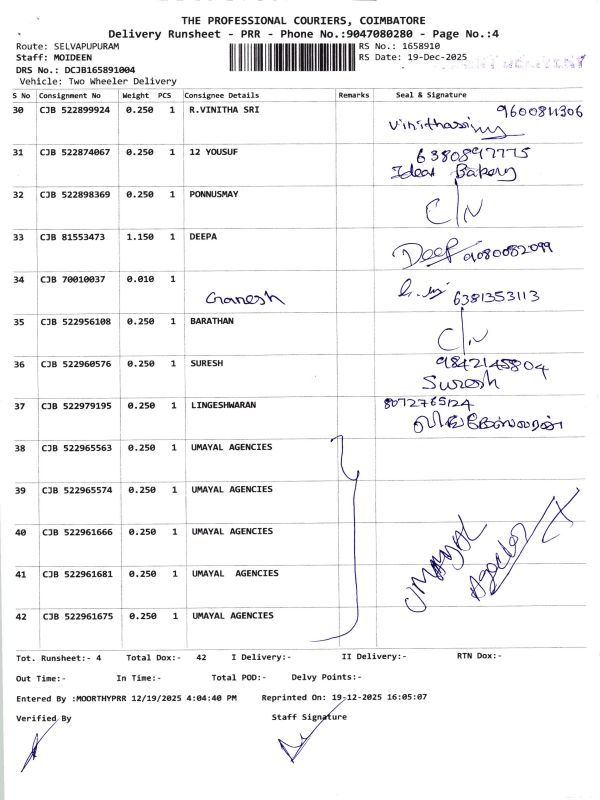 THE PROFESSIONAL COURIERS, COIMBATORE
Delivery Runsheet - PRR - Phone No.:9047080280 - Page No.:4
Route: SELVAPUPURAM
RS No.: 1658910
Staff: MOIDEEN
RS Date: 19-Dec-2025
DRS No.: DCJB165891004
Vehicle: Two Wheeler Delivery
S No Consignment No Weight PCS Consignee Details Remarks Seal & Signature
30 CJB 522899924 0.250 1 R.VINITHA SRI 9600811306
31 CJB 522874067 0.250 1 12 YOUSUF 6380897775
Ideal Bakery
32 CJB 522898369 0.250 1 PONNUSMAY
C/N
33 CJB 81553473 1.150 1 DEEPA
Deep 9080082099
34 CJB 70010037 0.010 1
Ganesh 6381353113
35 CJB 522956108 0.250 1 BARATHAN
C/N
36 CJB 522960576 0.250 1 SURESH 9842145804
Suresh
37 CJB 522979195 0.250 1 LINGESHWARAN 8072765124
லிங்கேஸ்வரன்
38 CJB 522965563 0.250 1 UMAYAL AGENCIES
39 CJB 522965574 0.250 1 UMAYAL AGENCIES
40 CJB 522961666 0.250 1 UMAYAL AGENCIES
41 CJB 522961681 0.250 1 UMAYAL AGENCIES
UMAYAL
42 CJB 522961675 0.250 1 UMAYAL AGENCIES
Tot. Runsheet:- 4 Total Dox:- 42 I Delivery:- II Delivery:- RTN Dox:-
Out Time:- In Time:- Total POD:- Delvy Points:-
Entered By :MOORTHYPRR 12/19/2025 4:04:40 PM Reprinted On: 19-12-2025 16:05:07
Verified By Staff Signature